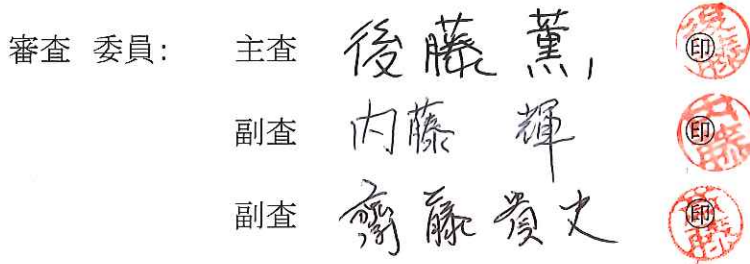 審査 委員: 主査 後藤 薫 ㊞
副査 内藤 輝 ㊞
副査 齋藤 貴史 ㊞